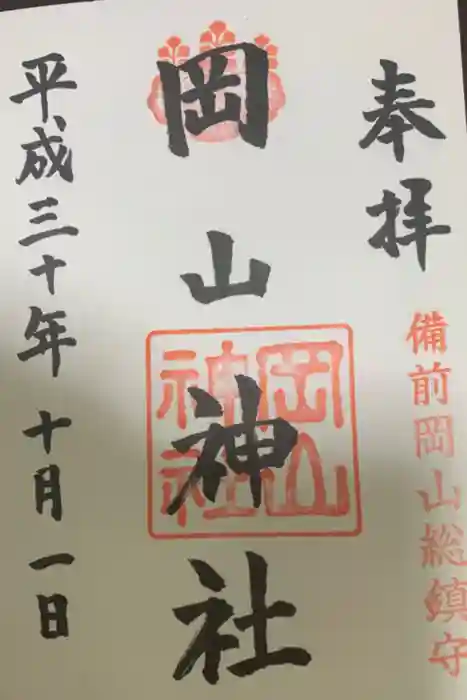 奉拝
備前岡山総鎮守
岡山神社
岡山
神社
平成三十年十月一日